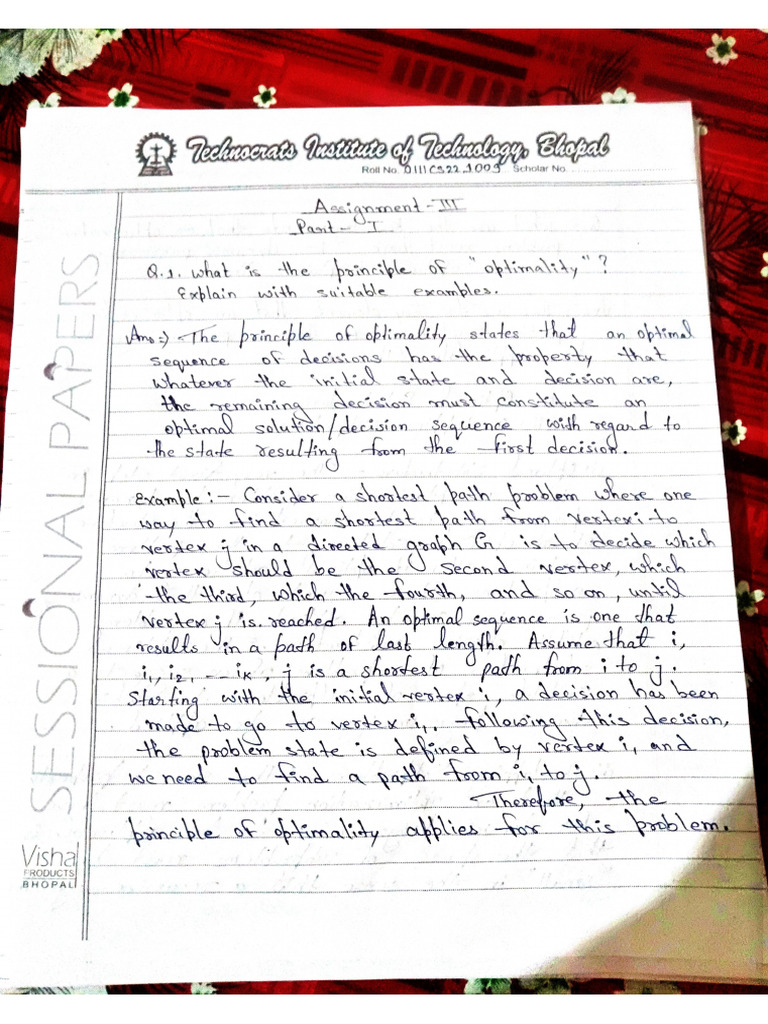 Technocrats Institute of Technology, Bhopal
Roll No. 0111CS221009 Scholar No.
Assignment-III
Part- I
Q.1. what is the principle of "optimality"?
Explain with suitable examples.
Ans:-) The principle of optimality states that an optimal
sequence of decisions has the property that
whatever the initial state and decision are,
the remaining decision must constitute an
optimal solution/decision sequence with regard to
the state resulting from the first decision.
Example:- Consider a shortest path problem where one
way to find a shortest path from vertex i to
vertex j in a directed graph G is to decide which
vertex should be the second vertex, which
the third, which the fourth, and so on, until
vertex j is reached. An optimal sequence is one that
results in a path of last length. Assume that i,
i₁, i₂, -- iₖ, j is a shortest path from i to j.
Starting with the initial vertex i, a decision has been
made to go to vertex i₁. following this decision,
the problem state is defined by vertex i₁ and
we need to find a path from i₁ to j.
Therefore, the
principle of optimality applies for this problem.
SESSIONAL PAPERS
Visha
PRODUCTS
BHOPAL